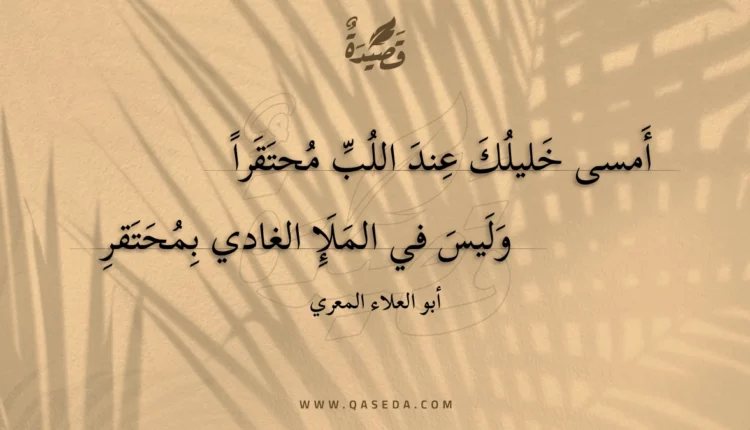 قَصِيْدَةٌ
أَمسى خَليلُكَ عِندَ اللُبِّ مُحتَقَراً
وَلَيسَ في المَلَإِ الغادي بِمُحَتَقرِ
أبو العلاء المعري
WWW.QASEDA.COM